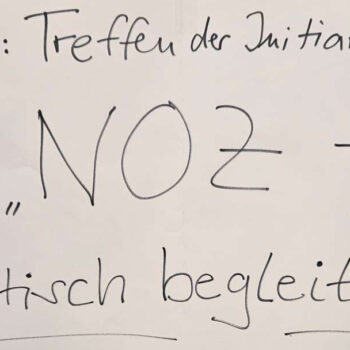 : Treffen der Initia
„NOZ -
tisch begleit